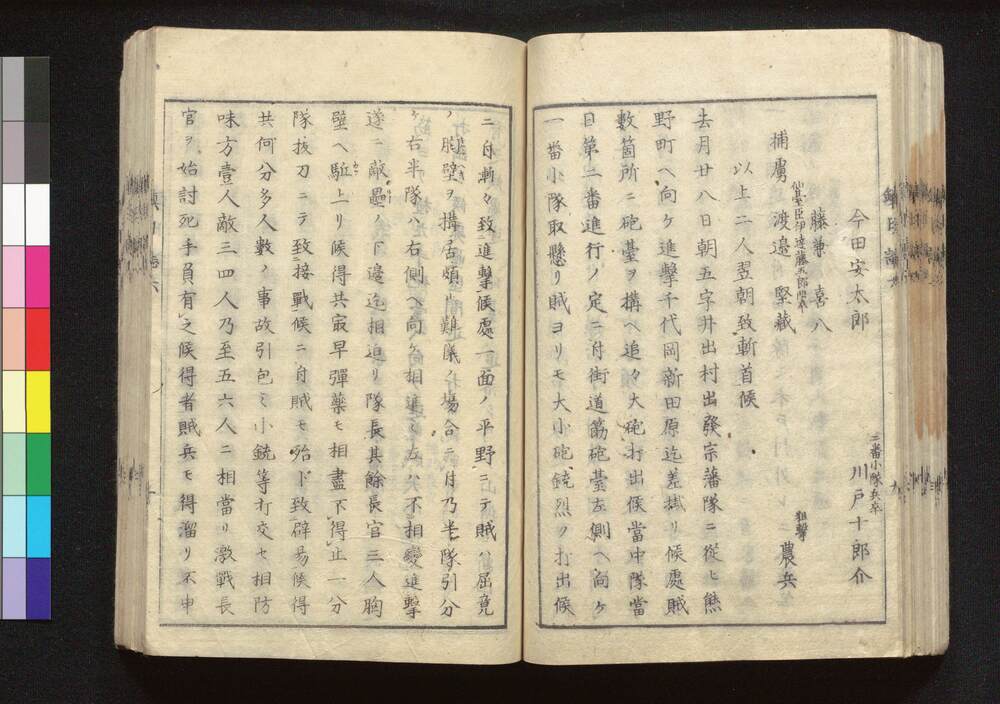 二番小隊兵卒
今田安太郎　川戸十郎介
藤兼喜八
仙臺臣伊達藤五郎
狙撃
捕虜　渡邉堅藏　農兵
以上二人翌朝致斬首候
去月廿八日朝五字井出村出發宗藩隊ニ從ヒ熊
野町ヘ向ケ進撃千代岡新田原迄差掛リ候處賊
數箇所ニ砲臺ヲ構ヘ追々大砲打出候當中隊當
日第二番進行ノ定ニ付街道筋砲臺左側ヘ向ケ
一番小隊取懸リ賊ヨリモ大小砲銃烈ク打出候
ニ付漸々致進撃候處一面ノ平野ニテ賊ハ屈竟
ノ胸壁ヲ構居頗ル難儀ノ場合ニ付乃半隊引分
ケ右半隊ハ右側ヘ向ケ相進ミ左ハ不相變進撃
遂ニ敵壘ノ下邉迄相迫リ隊長其餘長官三人胸
壁ヘ駈上リ候得共㝡早彈藥モ相盡不得止一分
隊抜刀ニテ致接戰候ニ付賊モ殆ド致辟易候得
共何分多人數ノ事故引包ミ小銃等打交セ相防
味方壹人敵三四人乃至五六人ニ相當リ激戰長
官ヲ始討死手負有之候得者賊兵モ得溜リ不申